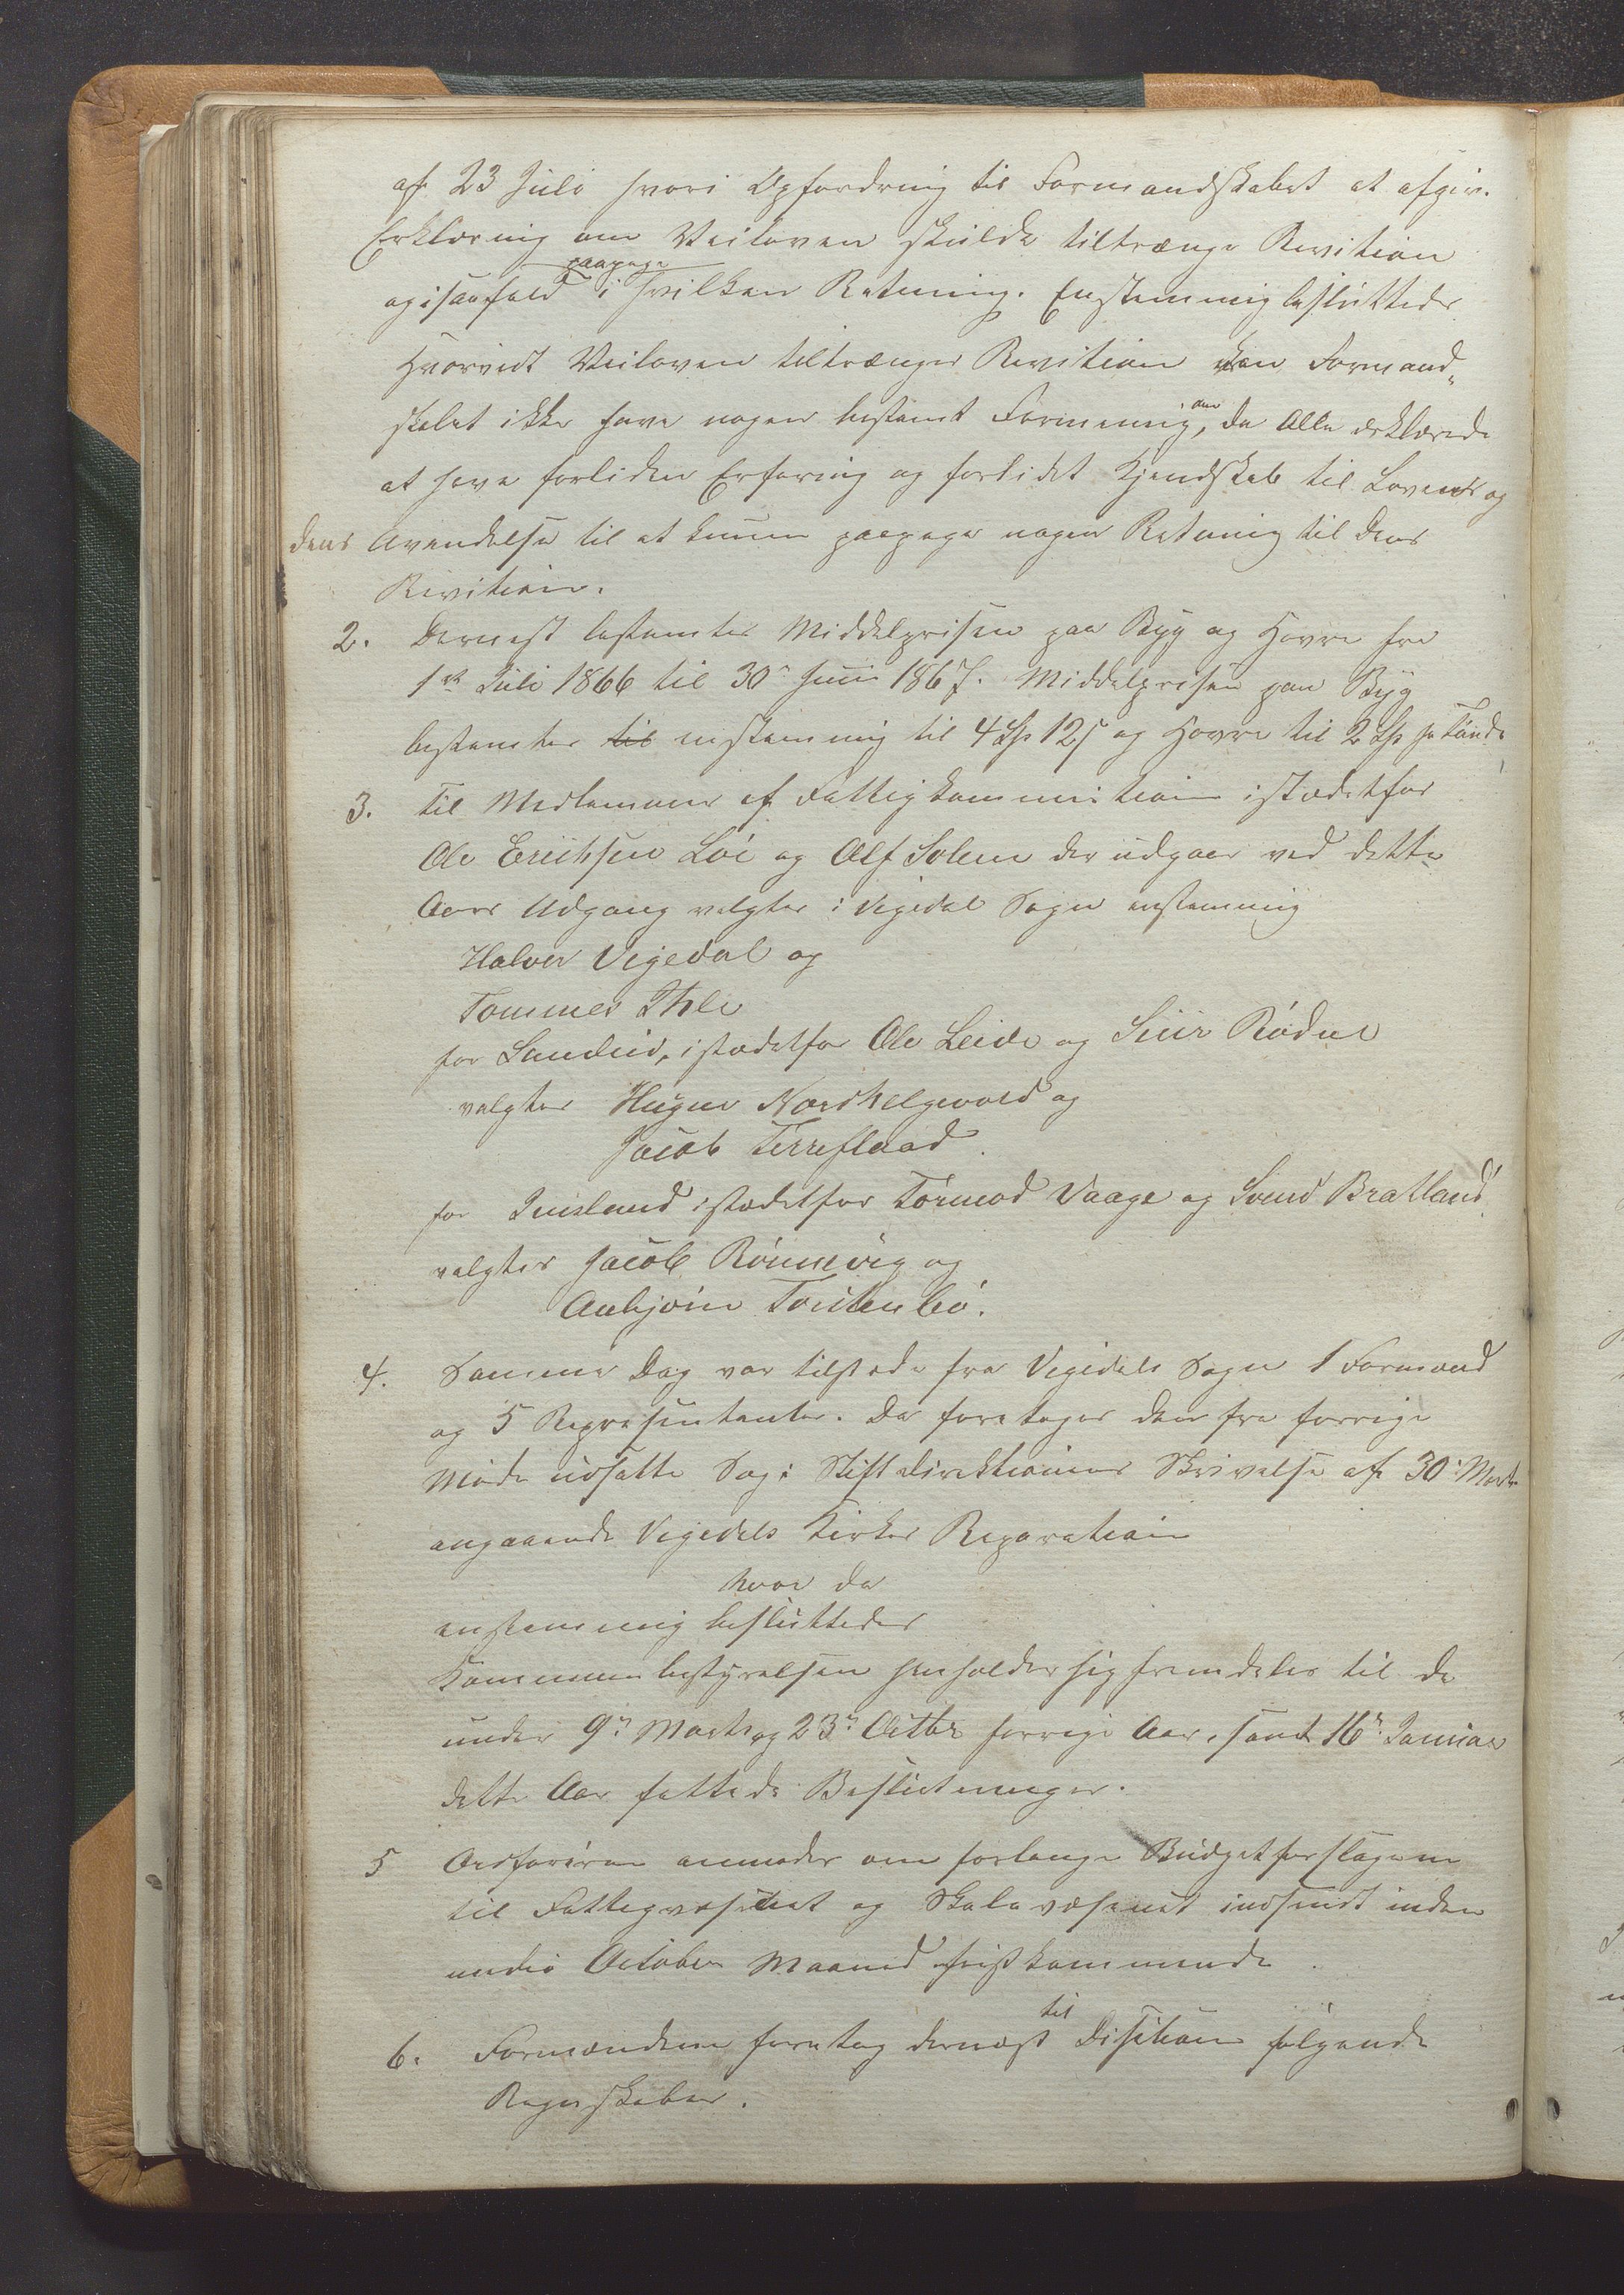 af 23 Juli hvori Opfordring til Formandskabet at afgiv.
Erklæring om Veiloven skulde tiltrænge Revition
paapege
og isaafald i hvilken Retning. Enstemmig besluttedes
Hvorvidt Veiloven tiltrænger Revition kan Formand„
skabet ikke have nogen bestemt Formening, da Alle erklærede
at have forliden Erfaring og forlidet Kjendskab til Loven og
dens Anvendelse til at kunne paapege nogen Retning til dens
Revition.
2. Dernest bestemtes Middelprisen paa Byg og Havre fra
1st Juli 1866 til 30te Juni 1867. Middelprisen paa Byg
bestemtes til enstemmig til 4 Sp 12 s og Havre til 2 Sp pr Tønde
3. Til Medlemmer af Fattigkommition istedetfor
Ole Erichsen Löe og Alf Solem der udgaar ved dette
Aars Udgang valgtes i Vigedal Sogn enstemmig
Halvor Vigedal og
Tommes Ihle
for Sandeid, istedetfor Ole Leide og Siur Rødne
valgtes Hugne Nordhelgevold og
Jacob Terreflaad.
for Imsland istedetfor Tormod Vaage og Svend Bratland
valgtes Jacob Rönnevig og
Anbjörn Tostenbö.
4. Samme Dag var tilstede fra Vigedals Sogn 1 Formand
og 5 Repræsentanter. Da foretages den fra forrige
Møde udsatte Sag: Stiftsdirektionens Skrivelse af 30te Marts
angaaende Vigedals Kirkes Reparation
hvor da
enstemmig besluttedes
Kommunebestyrelsen henholder sig fremdeles til de
under 9de Marts og 23de Octbr forrige Aar, samt 16de Januar
dette Aar fattede Beslutninger.
5 Ordføreren anmodes om forlange Budgetforslagene
til Fattigvæsenet og Skolevæsenet indsendt inden
medio October Maaned førstkommende
til
6. Formændene foretog dernæst Disition følgende
Regnskaber.